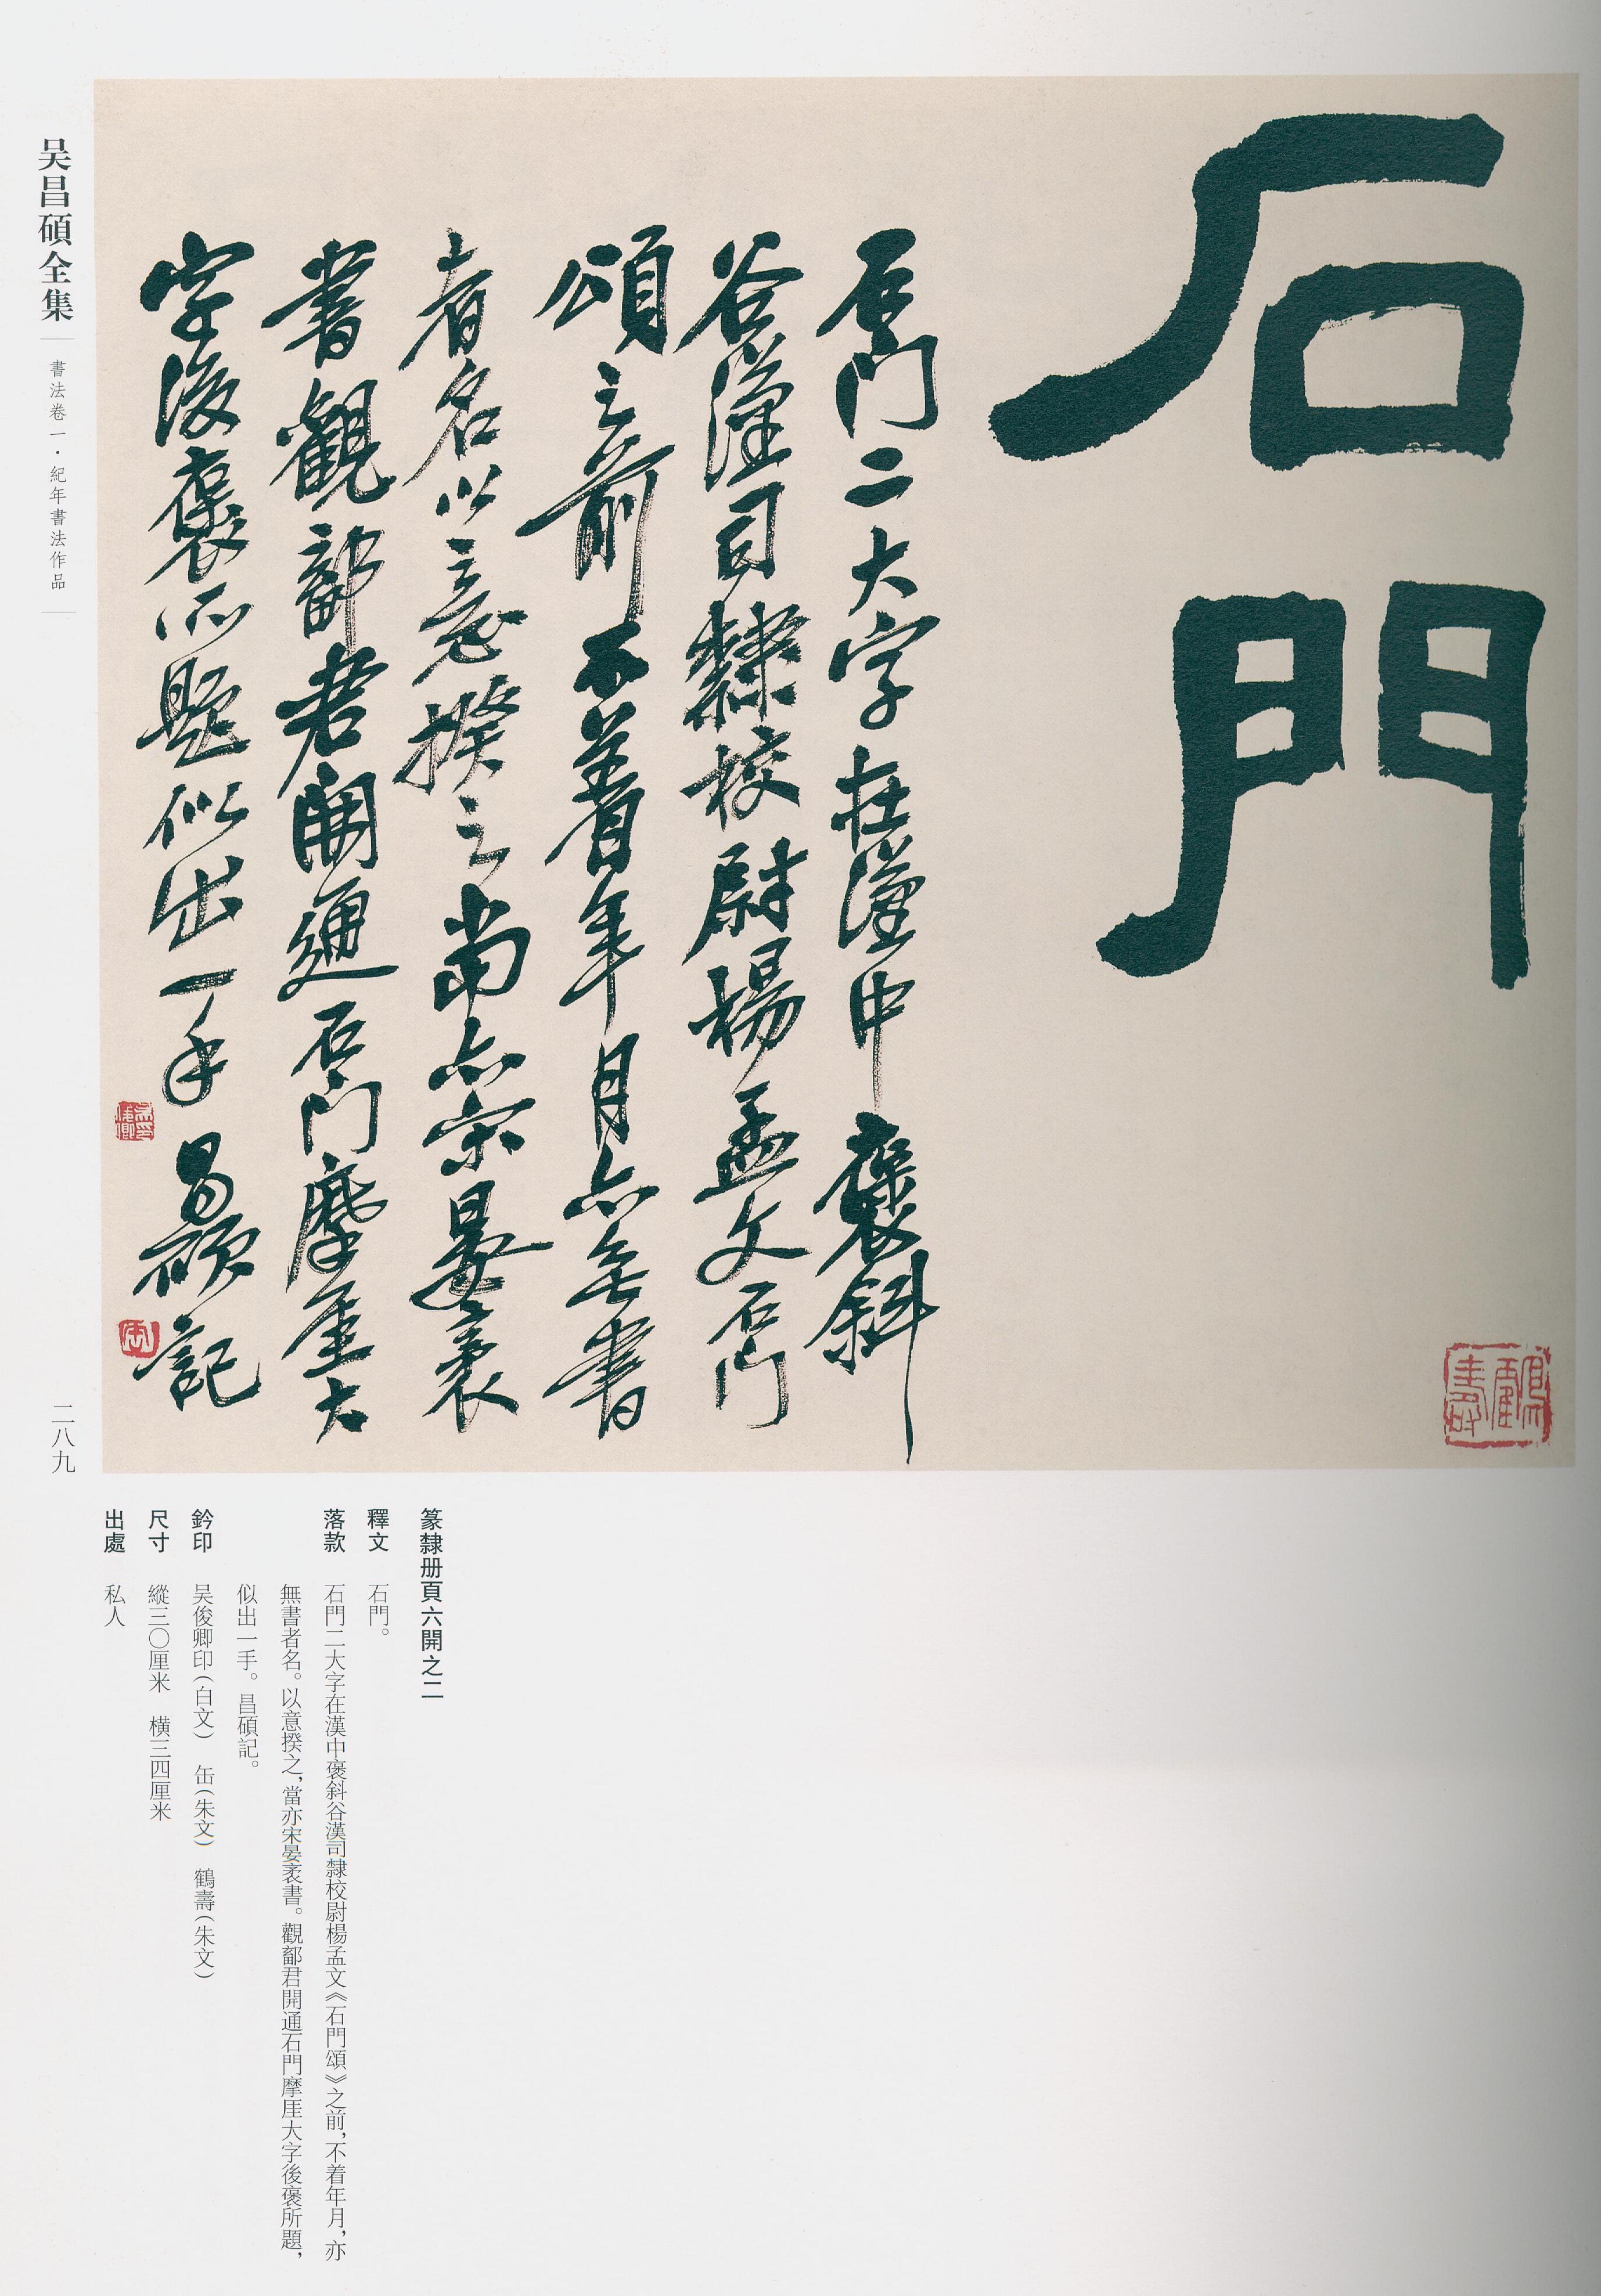 石門
石門二大字在漢中褒斜
谷漢司隸校尉楊孟文石門
頌之前不着年月亦無書
者名以意揆之當亦宋晏袤
書觀鄐君開通石門摩厓大
字後褒所題似出一手昌碩記
鶴壽
缶
吴昌碩全集
書法卷一·紀年書法作品
二八九
篆隸册頁六開之二
釋文 石門。
落款 石門二大字在漢中褒斜谷漢司隸校尉楊孟文《石門頌》之前,不着年月,亦
無書者名。以意揆之,當亦宋晏袤書。觀鄐君開通石門摩厓大字後褒所題,
似出一手。昌碩記。
鈐印 吴俊卿印(白文) 缶(朱文) 鶴壽(朱文)
尺寸 縱三〇厘米 横三四厘米
出處 私人